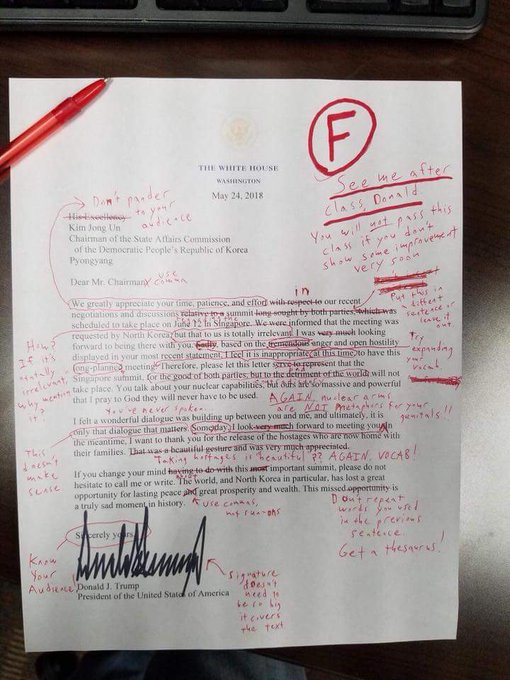 THE WHITE HOUSE
WASHINGTON
May 24, 2018
F
See me after
class, Donald
You will not pass this
class if you don't
show some improvement
very soon
Don't pander
to your
audience
His Excellency
Kim Jong Un
Chairman of the State Affairs Commission
of the Democratic People's Republic of Korea
Pyongyang
Dear Mr. Chairman
use
comma
in
We greatly appreciate your time, patience, and effort with respect to our recent
negotiations and discussions relative to a summit long sought by both parties, which was
scheduled to take place on June 12 in Singapore. We were informed that the meeting was
requested by North Korea, but that to us is totally irrelevant. I was very much looking
forward to being there with you. Sadly, based on the tremendous anger and open hostility
displayed in your most recent statement, I feel it is inappropriate, at this time, to have this
long-planned meeting. Therefore, please let this letter serve to represent that the
Singapore summit, for the good of both parties, but to the detriment of the world, will not
take place. You talk about your nuclear capabilities, but ours are so massive and powerful
that I pray to God they will never have to be used.
Put this in
different
sentence or
leave it
out
Try
expanding
your
vocab
How?
If it's
totally
irrelevant,
why mention
it?
AGAIN, nuclear arms
are NOT metaphors for your
genitals!!
You've never spoken
I felt a wonderful dialogue was building up between you and me, and ultimately, it is
only that dialogue that matters. Someday, I look very much forward to meeting you. In
the meantime, I want to thank you for the release of the hostages who are now home with
their families. That was a beautiful gesture and was very much appreciated.
Taking hostages is beautiful?? AGAIN, VOCAB!
This
doesn't
make
sense
If you change your mind having to do with this most important summit, please do not
hesitate to call me or write. The world, and North Korea in particular, has lost a great
opportunity for lasting peace and great prosperity and wealth. This missed opportunity is
a truly sad moment in history.
Use commas,
not run-ons
Don't repeat
words you used
in the previous
sentence.
Get a thesaurus!
Sincerely yours,
Know
Your
Audience!
Donald J. Trump
President of the United States of America
Signature
doesn't
need to
be so big
it covers
the text